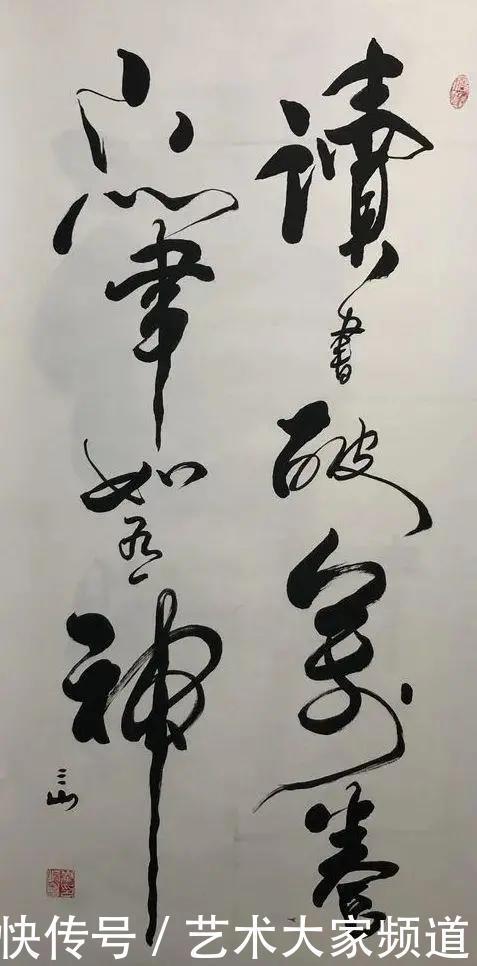 讀書破萬卷
下筆如有神
三山
快传号 / 艺术大家频道